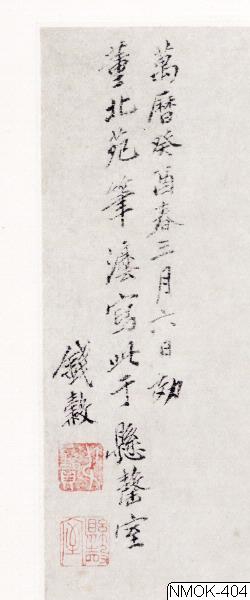 萬曆癸酉春三月六日效
董北苑筆法寫此于懸磬室
錢穀
NMOK-404